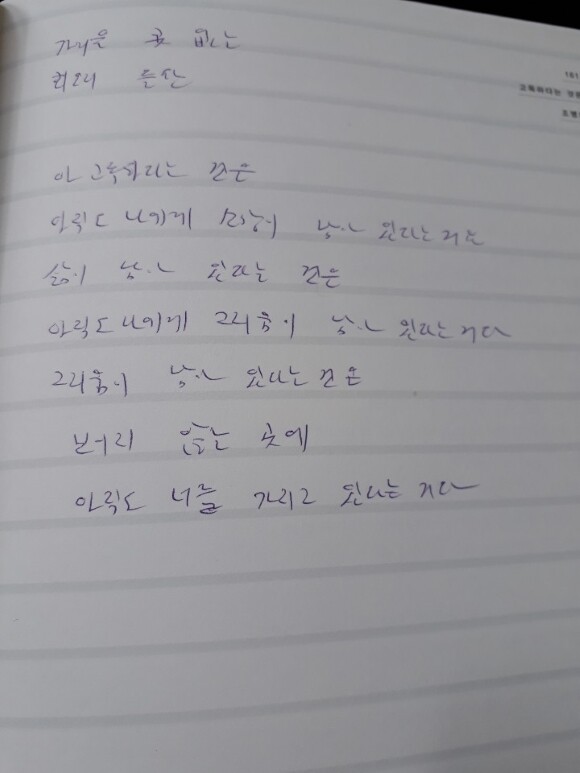 가리울 곳 없는
회오리 들판
아 고독하다는 것은
아직도 나에게 소망이 남아 있다는 거요
삶이 남아 있다는 것은
아직도 나에게 그리움이 남아 있다는 거다
그리움이 남아 있다는 것은
보이지 않는 곳에
아직도 너를 가지고 있다는 거다
161
고독하다는 것은
조병